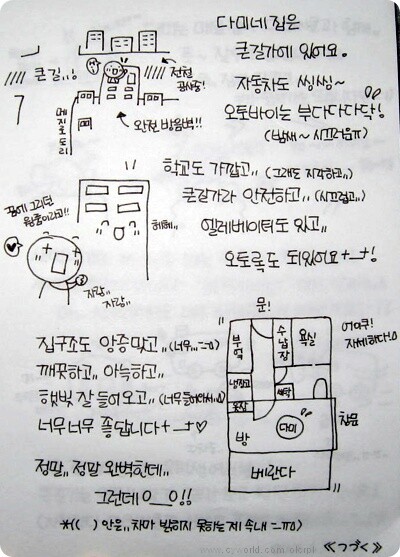 다미네 집은
큰길가에 있어요.
자동차도 씽씽~
오토바이는 부다다다닥!
(밤새~ 시끄러움ㅠ)
큰길,,!
전철
공사중!
메지로도리
완전 방음벽!!
학교도 가깝고,, (그래도 지각하고,,
큰길가라 안전하고,, (시끄럽고,,)
엘레베이터도 있고,,
오토록도 되있어요+_+!
꿈에 그리던
원룸이라고!!
헤헤,,
자랑,,
자랑,,
집구조도 앙증맞고,, (너무,,=ㅁ=)
깨끗하고,, 아늑하고,,
햇빛 잘 들어오고,, (너무들어와서,,
너무너무 좋답니다+_+♡
정말,, 정말 완벽한데,,
그런데 O__O!!
*( ) 안은,, 차마 밝히지 못하는 제 속내 =ㅠ=)
문!
부엌
수납장
욕실
냉장고
옷장
세탁
방
다미
창문
베란다
어이쿠!
자세하다!
≪つづく≫
www.cyworld.com/